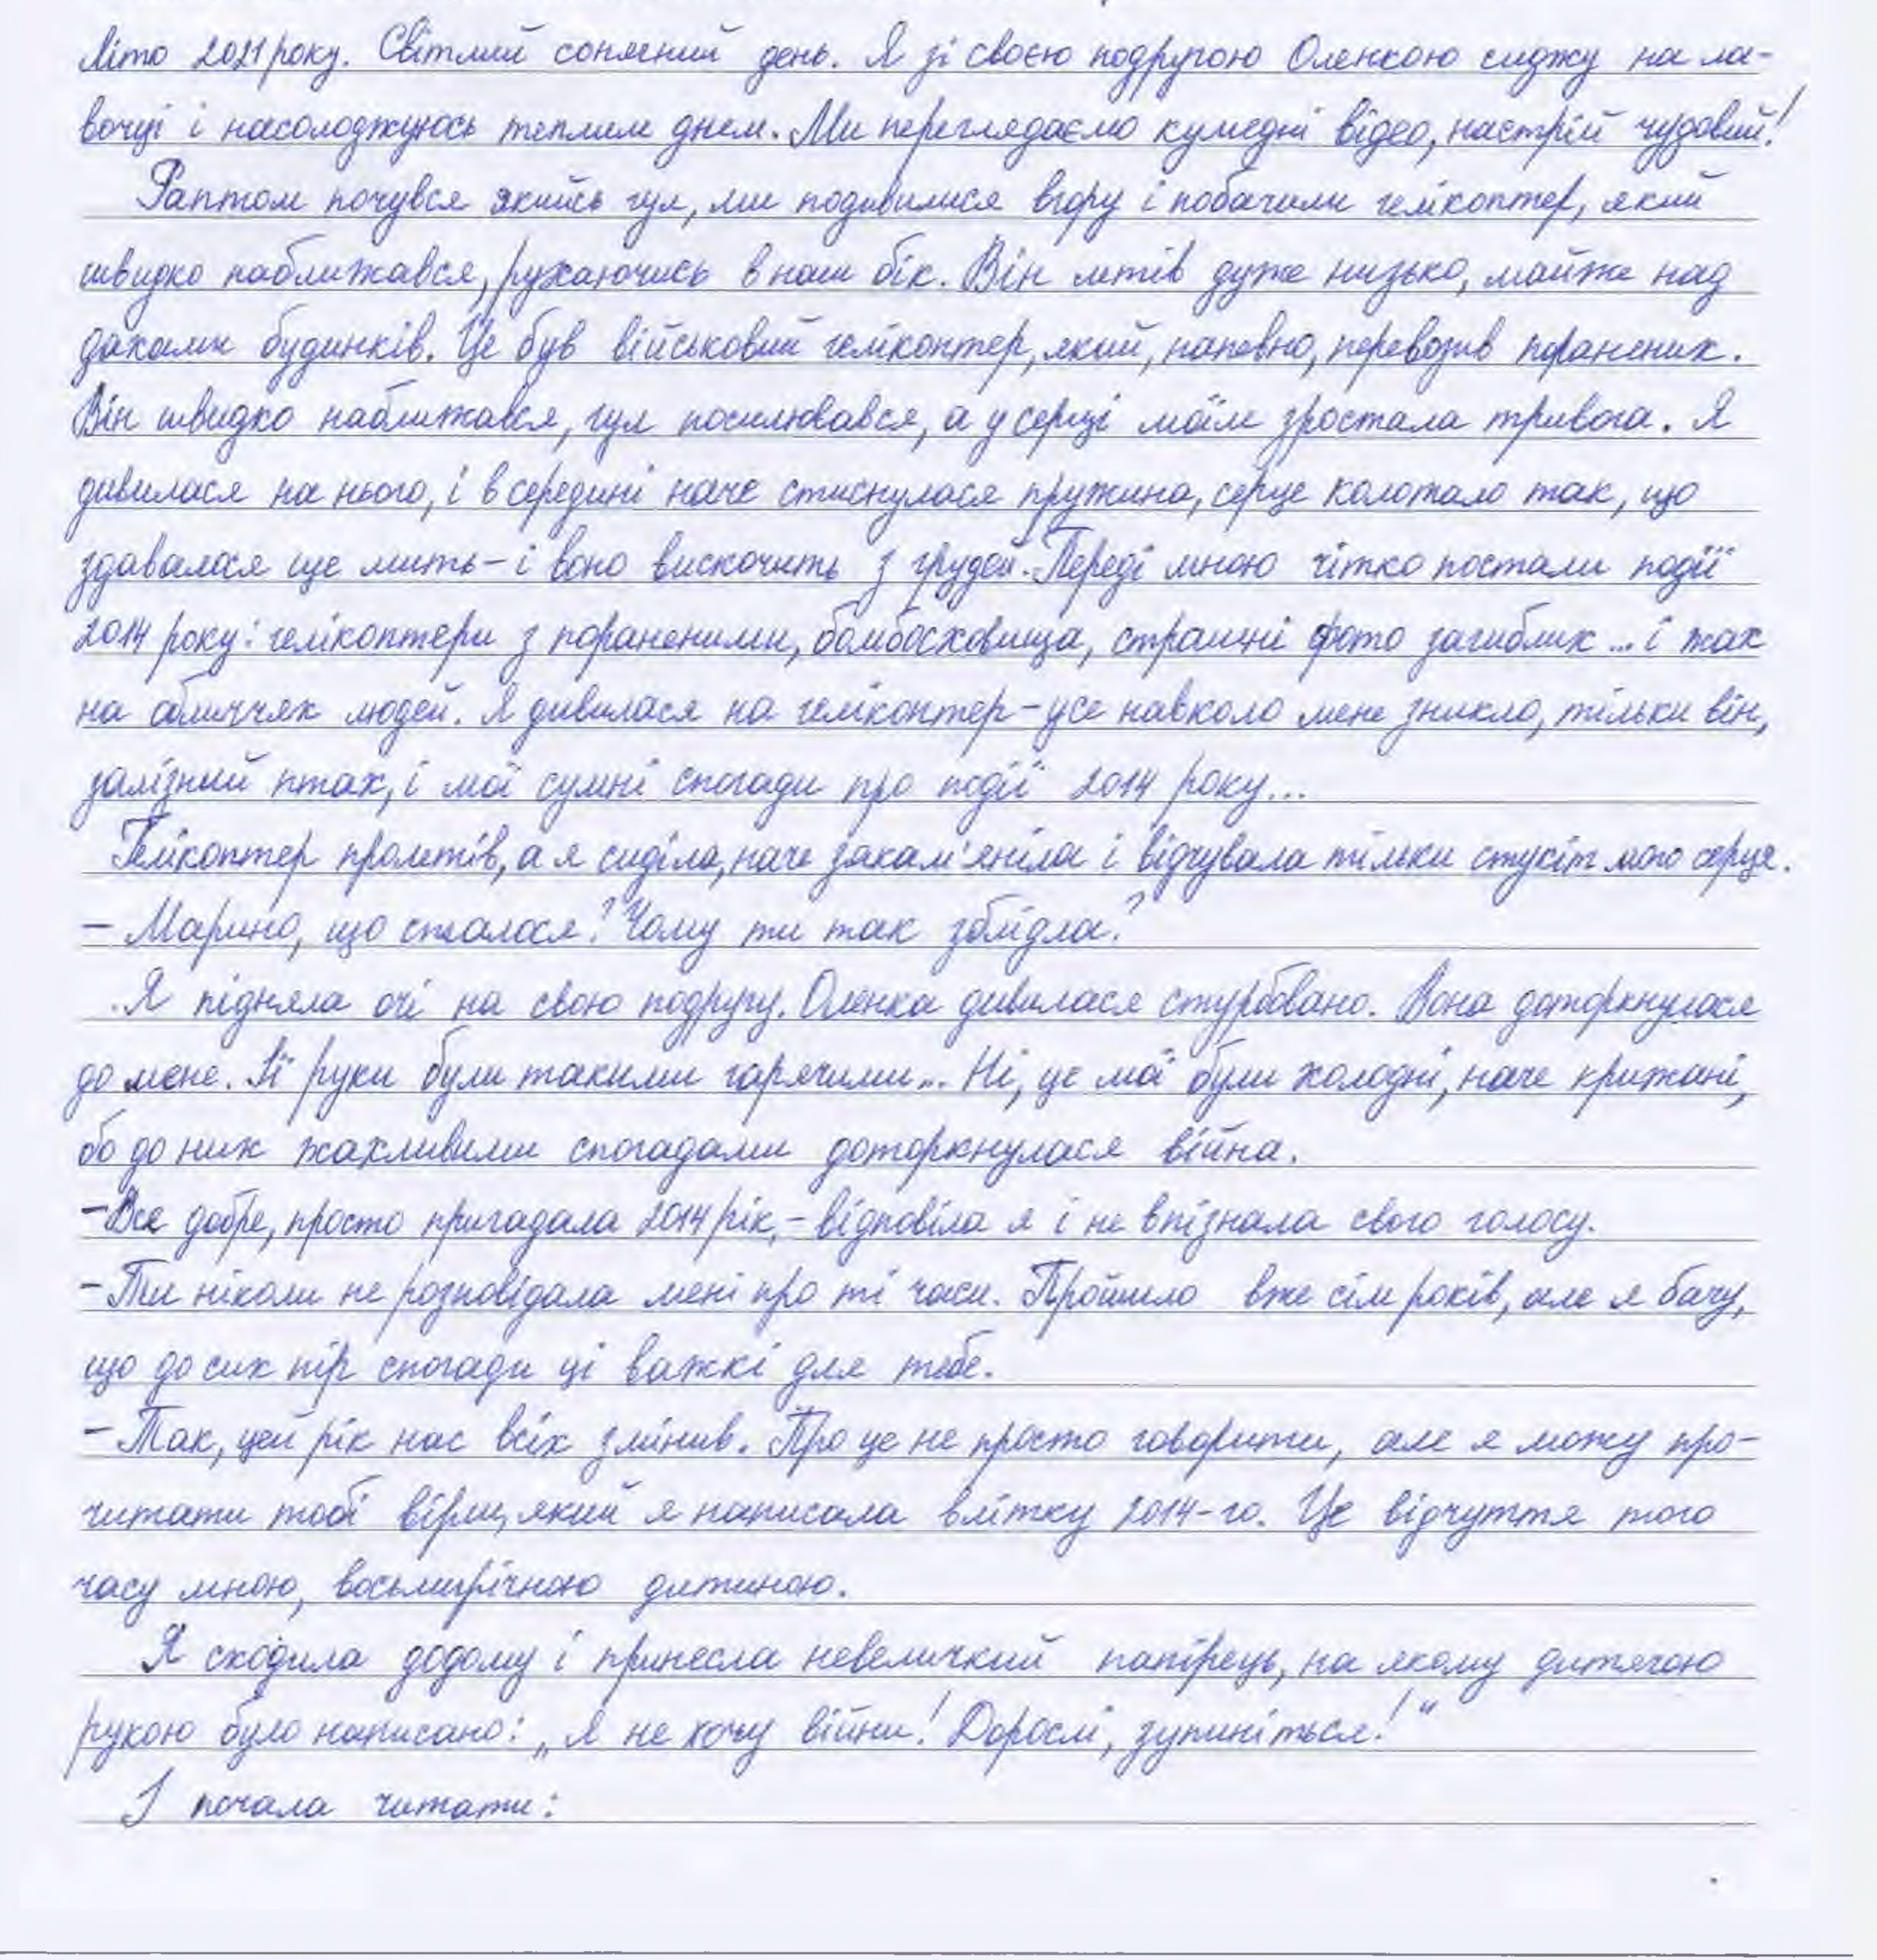 Літо 2021 року. Світлий сонячний день. Я зі своєю подругою Оленкою сиджу на ла-
вочці і насолоджуюсь теплим днем. Ми переглядаємо кумедні відео, настрій чудовий!
Раптом почувся якийсь гул, ми подивилися вгору і побачили гелікоптер, який
швидко наближався, рухаючись в наш бік. Він летів дуже низько, майже над
дахами будинків. Це був військовий гелікоптер, який, напевно, перевозив поранених.
Він швидко наближався, гул посилювався, а у серці моїм зростала тривога. Я
дивилася на нього, і всередині наче стиснулася пружина, серце калатало так, що
здавалося ще мить – і воно вискочить з грудей. Переді мною чітко постали події
2014 року: гелікоптери з пораненими, бомбосховища, страшні фото загиблих ... і жах
на обличчях людей. Я дивилася на гелікоптер – усе навколо мене зникло, тільки він,
залізний птах, і мої сумні спогади про події 2014 року...
Гелікоптер пролетів, а я сиділа, наче закам'яніла і відчувала тільки стукіт мого серця.
– Марино, що сталося? Чому ти так зблідла?
Я підняла очі на свою подругу. Оленка дивилася стурбовано. Вона доторкнулася
до мене. Її руки були такими гарячими... Ні, це мої були холодні, наче крижані,
бо до них жахливими спогадами доторкнулася війна.
– Все добре, просто пригадала 2014 рік, – відповіла я і не впізнала свого голосу.
– Ти ніколи не розповідала мені про ті часи. Пройшло вже сім років, але я бачу,
що до сих пір спогади ці важкі для тебе.
– Так, цей рік нас всіх змінив. Про це не просто говорити, але я можу про-
читати тобі вірш, який я написала влітку 2014-го. Це відчуття того
часу мною, восьмирічною дитиною.
Я сходила додому і принесла невеличкий папірець, на якому дитячою
рукою було написано: „Я не хочу війни! Дорослі, зупиніться!“
І почала читати: